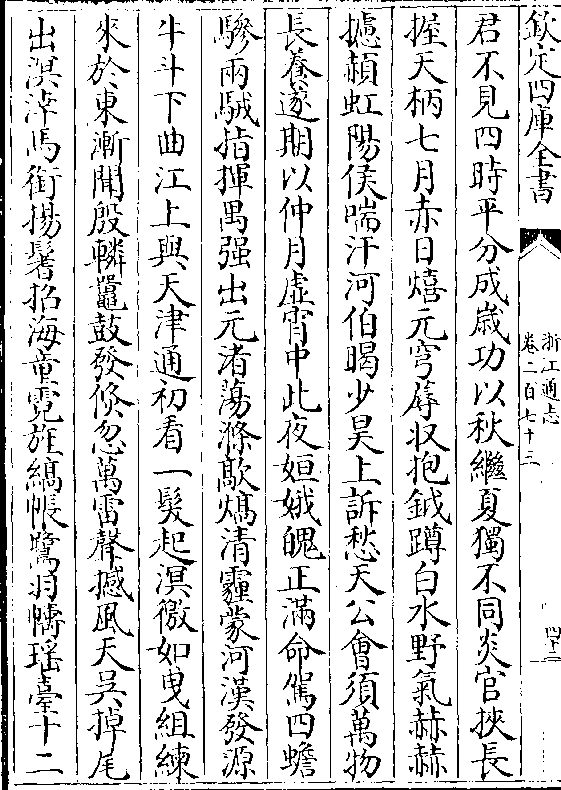 欽定四庫全書
浙江通志
卷二百七十三
四十三
君不見四時平分成歲功以秋繼夏獨不同炎官挾長
握天柄七月赤日熺元穹蓐収抱鉞蹲白水野氣赫赫
攄赬虹陽侯喘汗河伯暍少昊上訴愁天公會須萬物
長養遂期以仲月虛宵中此夜姮娥魄正滿命駕四蟾
驂兩駥指揮禺强出元渚蕩滌歊熇清霾蒙河漢發源
牛斗下曲江上與天津通初看一髮起溟徼如曳組練
來於東漸聞殷轔鼉鼓發倏忽萬雷聲撼風天吳掉尾
出溟涬馬銜揚鬐招海童霓旌縞帳鷺羽幬瑤臺十二